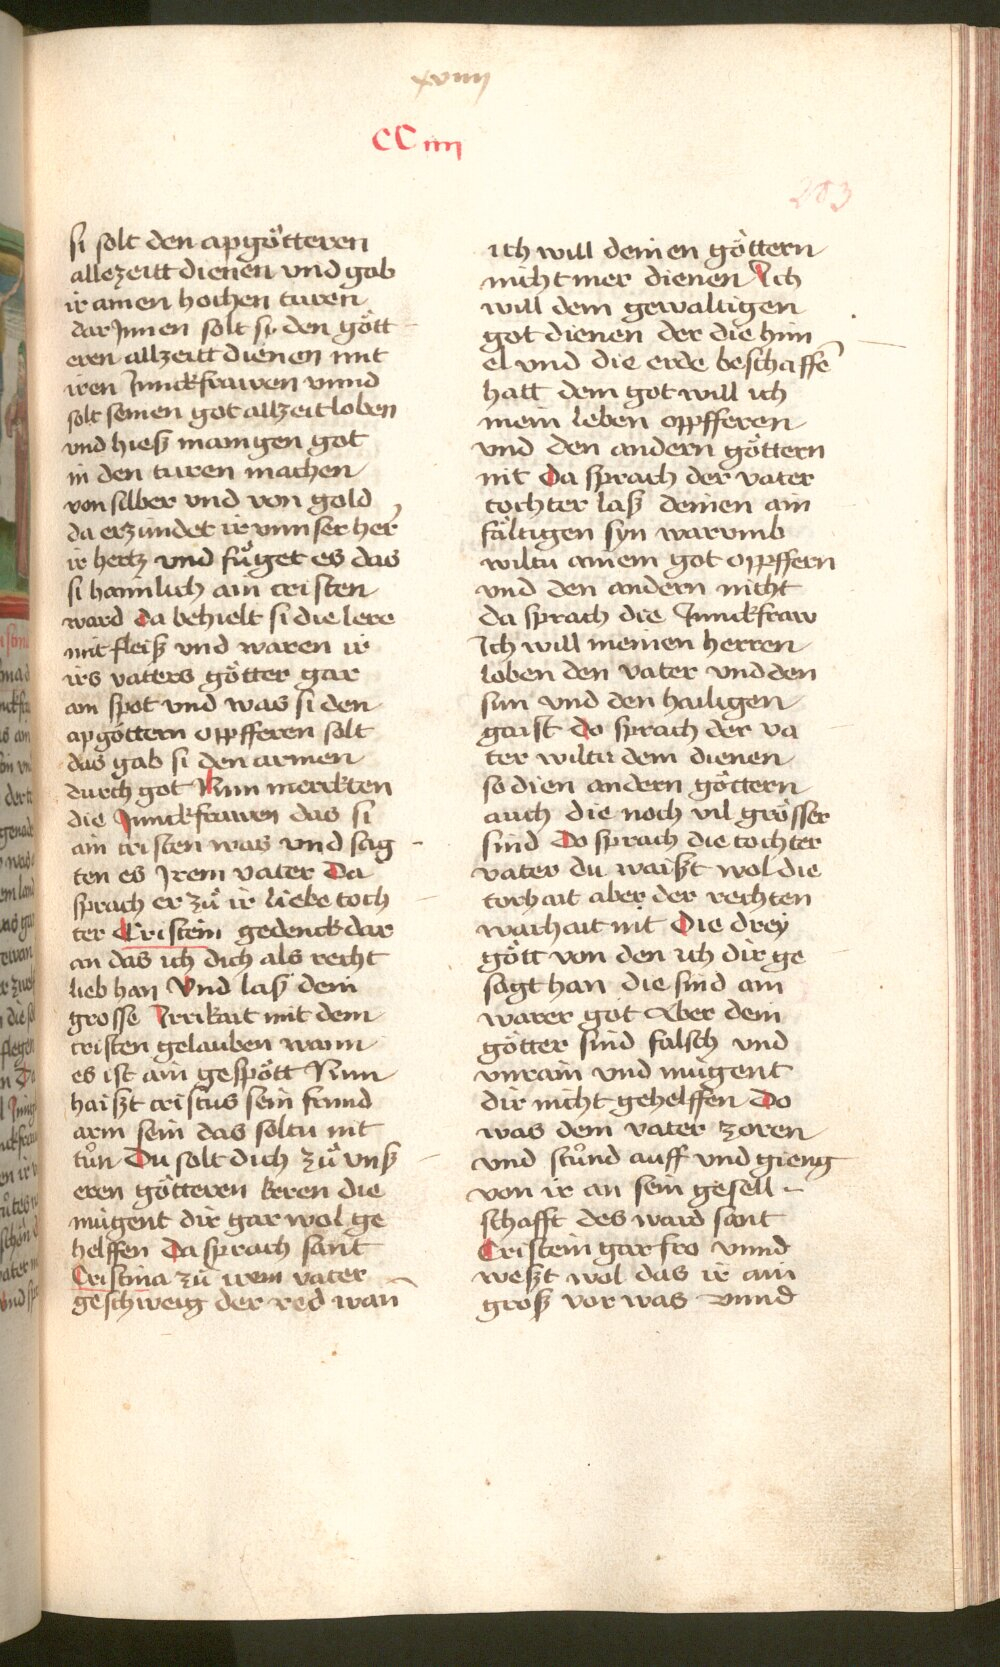 xviiij
CC iiij
203
si solt den apgötteren
allezeitt dienen vnd gab
ir amen hochen turen
dar Jnnen solt si den gött
eren allzeitt dienen mit
iren Junckfrawen vnnd
solt semen got allzeit loben
vnd hiesz manigen got
in den turen machen
von silber vnd von gold
da erzündet ir vnnser her
ir hertz vnd füget es das
si hannlich ain cristen
ward da behielt si die lere
mit fleisz vnd waren ir
irs vaters götter gar
ain spot vnd was si den
apgöttern oppfferen solt
das gab si den armen
durch got Nun merckten
die Junckfrawen das si
ain cristen was vnd sag
ten es Jrem vater Da
sprach er zů ir liebe toch
ter Cristein gedenck dar
an das ich dich als recht
lieb han Vnd lasz dein
grosse Jrrikait mit dem
cristen gelauben wann
es ist ain gespött Nun
haiszt cristus sein frund
arm sein das soltu nit
tůn Du solt dich zů vnsz
eren götteren keren die
mügent dir gar wol ge
helffen Da sprach sant
Cristina zů irem vater
geschweig der red wan̄
ich will deinen göttern
nicht mer dienen Jch
will dem gewaltigen
got dienen der die him
el vnd die erde beschaffē
hatt dem got will ich
mein leben oppfferen
vnd den andern göttern
nit Da sprach der vater
tochter lasz deinen ain
fältigen syn warumb
wiltu ainem got oppffern
vnd den andern nicht
da sprach die Junckfraw
Jch will meinen herren
loben den vater vnd den
sun vnd den hailigen
gaist do sprach der va
ter wiltu dem dienen
so dien andern göttern
auch die noch vil grösser
sind Do sprach die tochter
vater du waiszt wol die
torhait aber der rechten
warhait nit Die drey
gött von den ich dir ge
sagt han die sind ain
warer got Aber dein
götter sind falsch vnd
vnrain vnd mügent
dir nicht gehelffen Do
was dem vater zoren
vnd stůnd auff vnd gieng
von ir an sein gesell
schafft des ward sant
Cristein gar fro vnnd
weszt wol das ir ain
grosz vor was vnnd